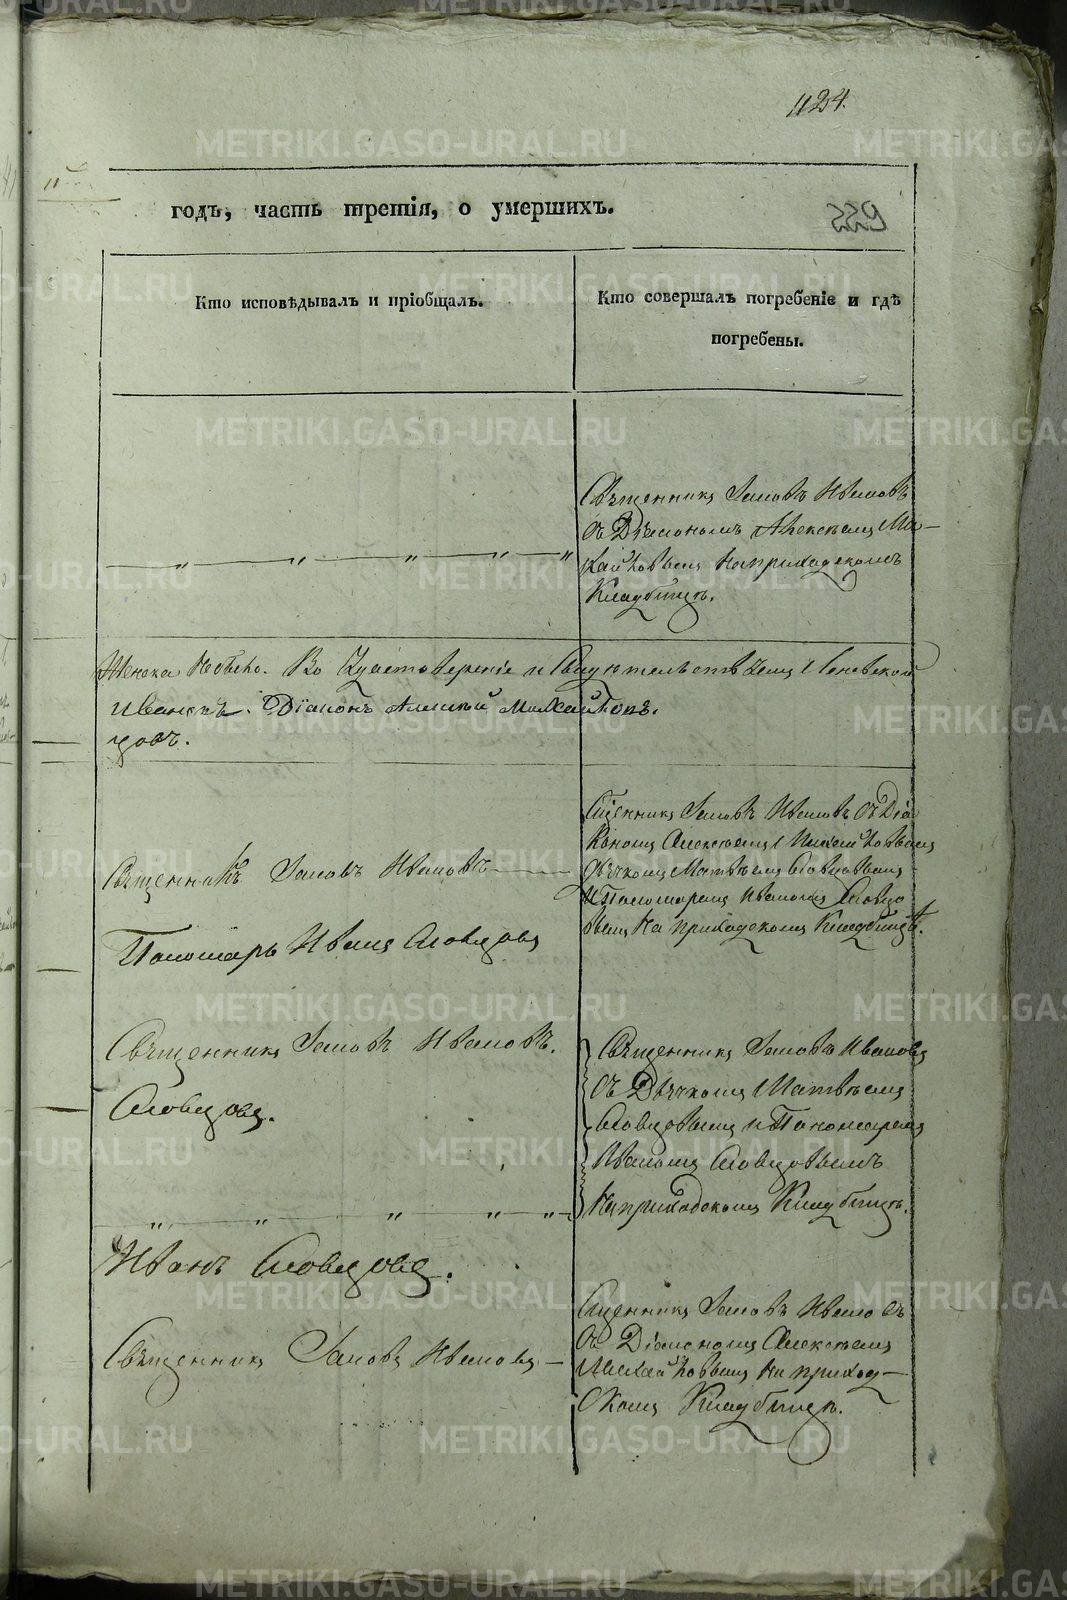 1124.
годъ, часть третія, о умершихъ.
Кто исповѣдывалъ и пріобщалъ.
Кто совершалъ погребеніе и гдѣ
погребены.
Священникъ Іаковъ Ивановъ
съ Діакономъ Алексѣемъ Ми-
хайловымъ на приходскомъ
Кладбищѣ.
Женска Небыло. Во Удостовереніе и
Иванъ. Діаконъ Алексѣй Михайловъ.
цовъ.
Священникъ Іаковъ Ивановъ
Пономарь Иванъ Словцовъ
Сщенникъ Іаковъ Ивановъ съ Діа
кономъ Алексѣемъ Михайловымъ
Дьячкомъ Матвѣемъ Словцовымъ
и Пономаремъ Иваномъ Словцо
вымъ на приходскомъ Кладбищѣ.
Священникъ Іаковъ Ивановъ.
Словцовъ.
Священникъ Іаковъ Ивановъ
съ Дьячкомъ Матвѣемъ
Словцовымъ и Пономаремъ
Иваномъ Словцовымъ
на приходскомъ Кладбищѣ.
Иванъ Словцовъ.
Священникъ Іаковъ Ивановъ
Сщенникъ Іаковъ Ивановъ
съ Діакономъ Алексѣемъ
Михайловымъ на приход-
скомъ Кладбищѣ.
METRIKI.GASO-URAL.RU